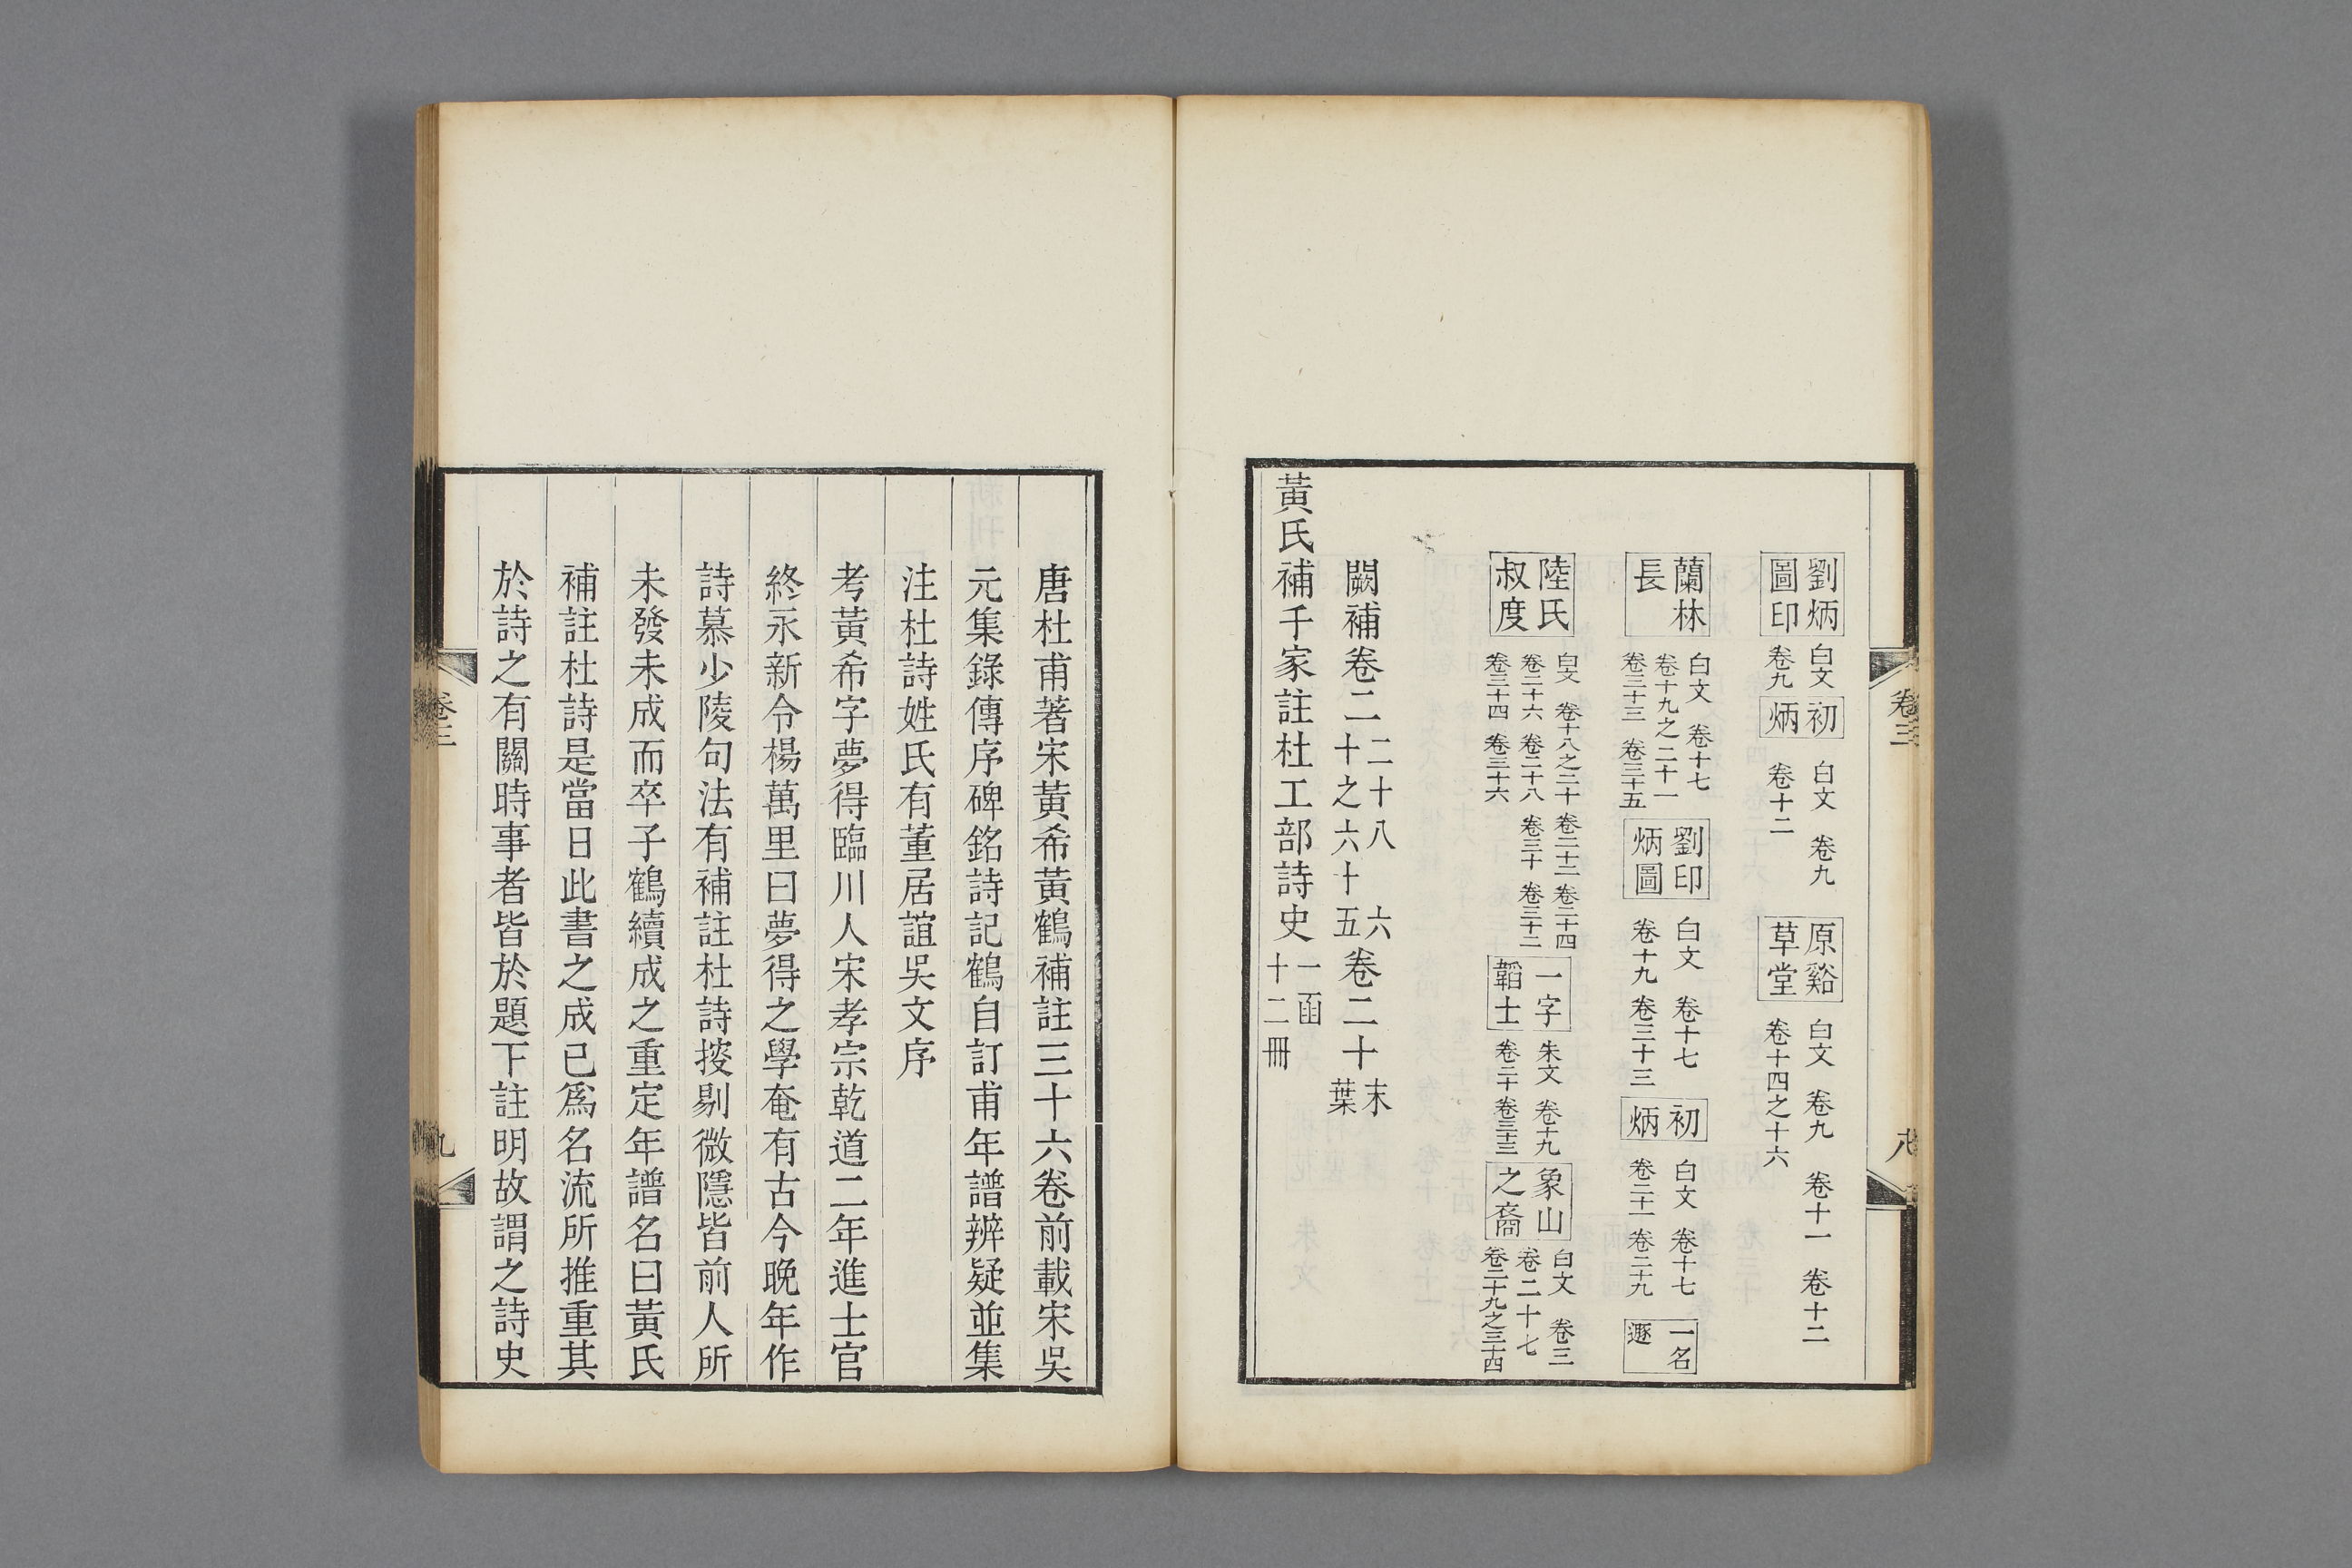 劉炳圖印 白文 卷九 初炳 白文 卷九 卷十二 原谿草堂 白文 卷九 卷十一 卷十二 卷十四之十六
蘭林長 白文 卷十七 卷十九之二十一 卷三十三 卷三十五 劉印炳圖 白文 卷十七 卷十九 卷三十三 初炳 白文 卷十七 卷二十一 卷二十九 一名遯
陸氏叔度 白文 卷十八之二十 卷二十二 卷二十四 卷二十六 卷二十八 卷三十 卷三十二 卷三十四 卷三十六 一字韜士 朱文 卷十九 卷二十 卷三十三 象山之裔 白文 卷三 卷二十七 卷二十九之三十四
闕補卷二 二十八 十之六十五 六 卷二十 末葉
黃氏補千家註杜工部詩史 一函十二冊
卷三
八
唐杜甫著宋黃希黃鶴補註三十六卷前載宋吳
元集錄傳序碑銘詩記鶴自訂甫年譜辨疑並集
注杜詩姓氏有董居誼吳文序
考黃希字夢得臨川人宋孝宗乾道二年進士官
終永新令楊萬里曰夢得之學奄有古今晚年作
詩慕少陵句法有補註杜詩揆剔微隱皆前人所
未發未成而卒子鶴續成之重定年譜名曰黃氏
補註杜詩是當日此書之成已為名流所推重其
於詩之有關時事者皆於題下註明故謂之詩史
卷三
九